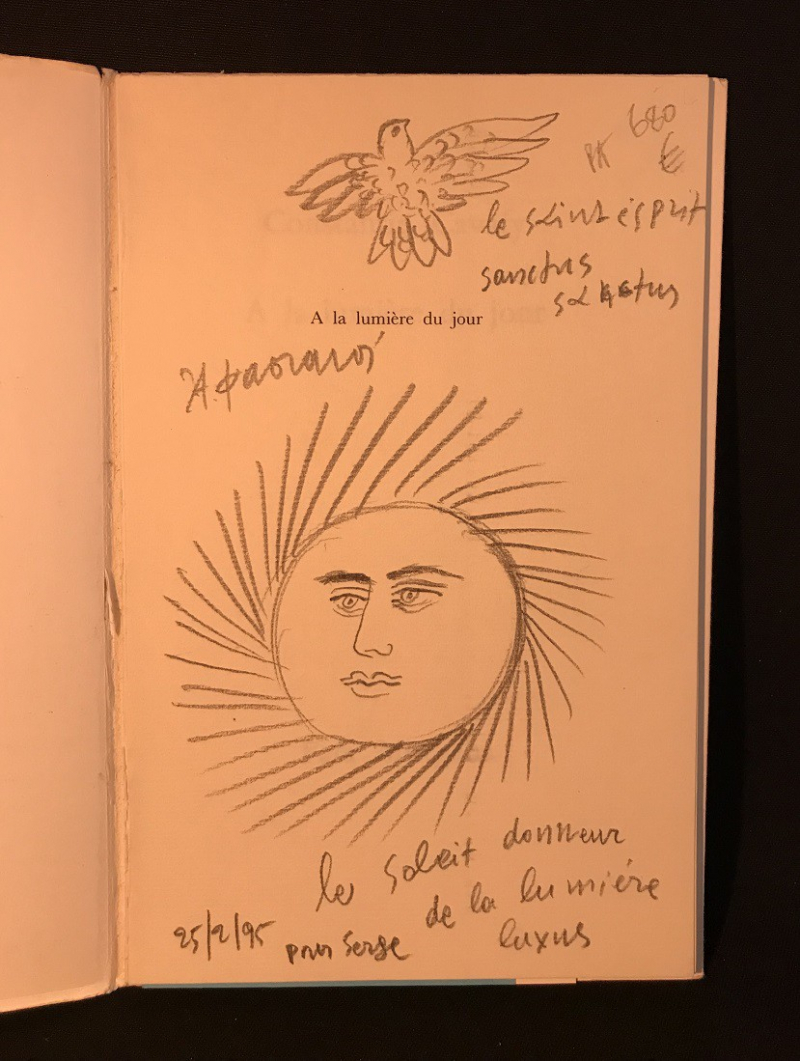 680
PK €
le saint ésprit
sanctus
A la lumière du jour
Α.φασιανός
le soleit donneur
de la lumière
25/2/95 pour Serge luxus